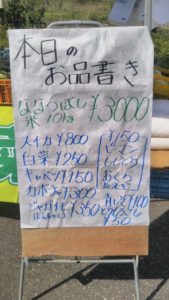 本日の
お品書き
ななつぼし
米 10kg ¥3000
スイカ ¥800
白菜 ¥250
キャベツ ¥150
カボチャ ¥300
ジャガイモ ¥350
¥150
ピーマン
ししとう
おくら
¥100
¥50